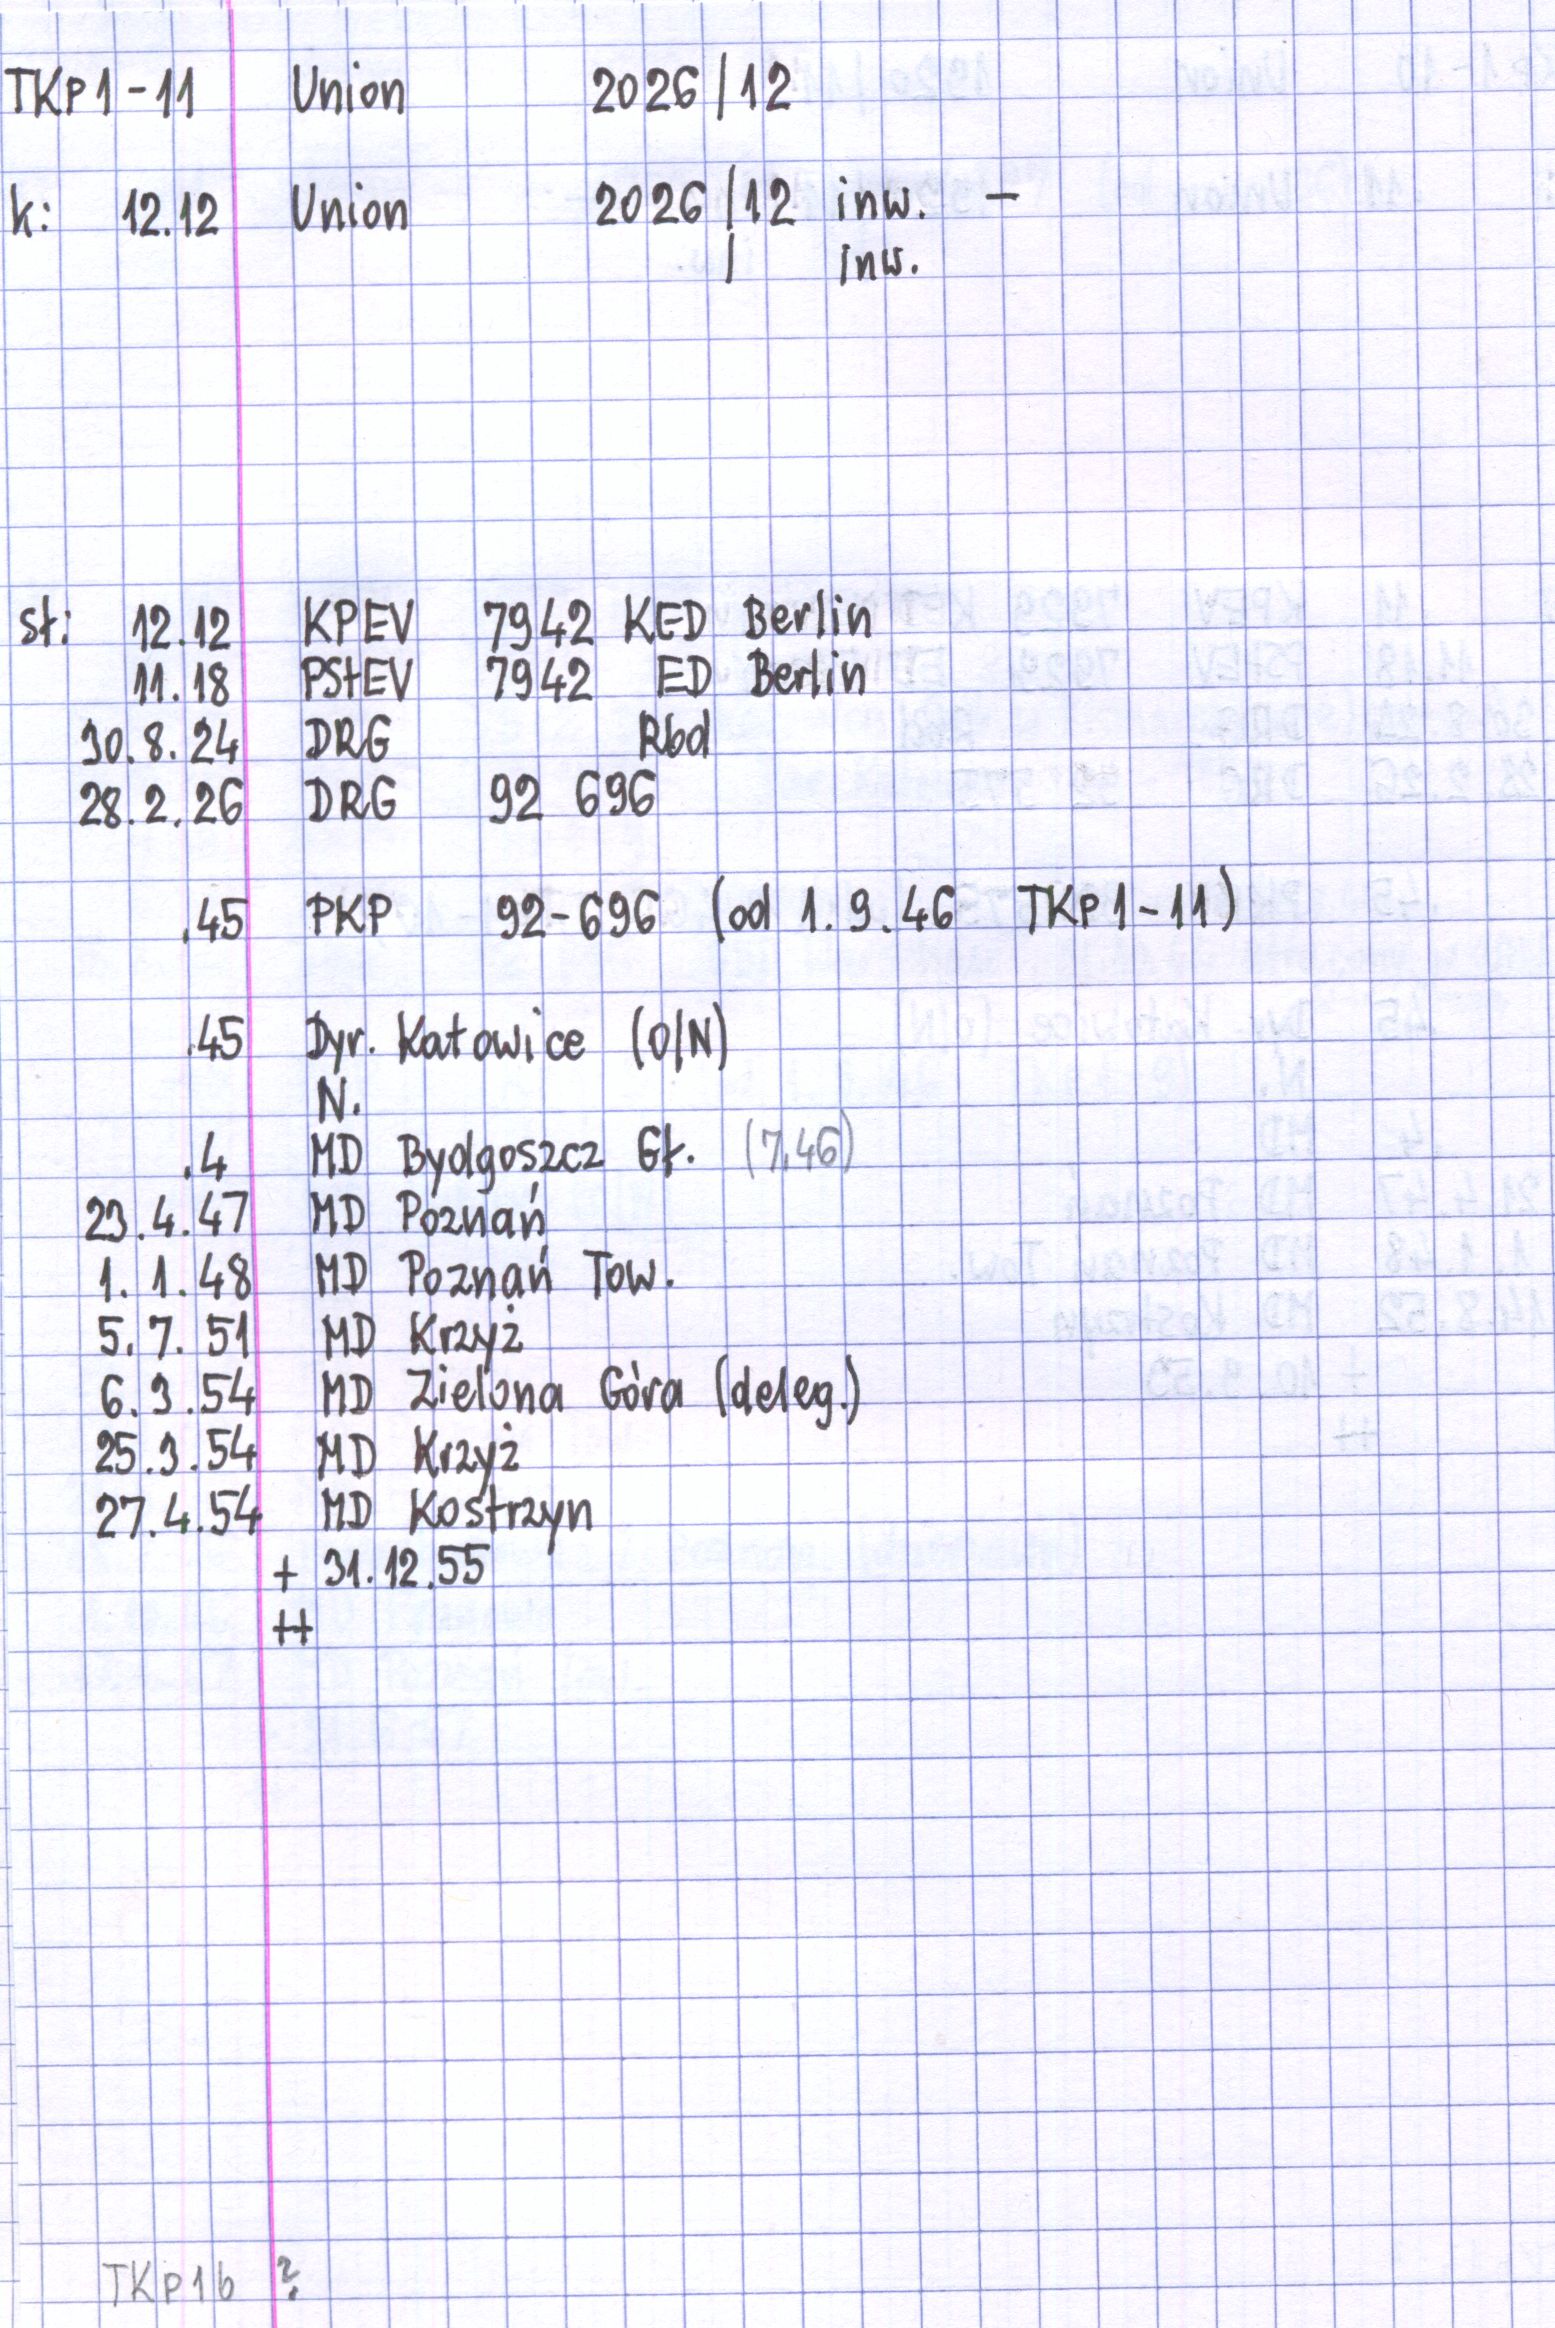 TKp1-11 Union 2026/12
k: 12.12 Union 2026/12 inw. -
/ inw.
st: 12.12 KPEV 7942 KED Berlin
11.18 PStEV 7942 ED Berlin
30.8.24 DRG Rbd
28.2.26 DRG 92 696
.45 PKP 92-696 (od 1.9.46 TKp1-11)
.45 Dyr. Katowice (O/N)
N.
.4 MD Bydgoszcz Gł. (7.46)
23.4.47 MD Poznań
1.1.48 MD Poznań Tow.
5.7.51 MD Krzyż
6.3.54 MD Zielona Góra (deleg.)
25.3.54 MD Krzyż
27.4.54 MD Kostrzyn
+ 31.12.55
++
TKp1b ?